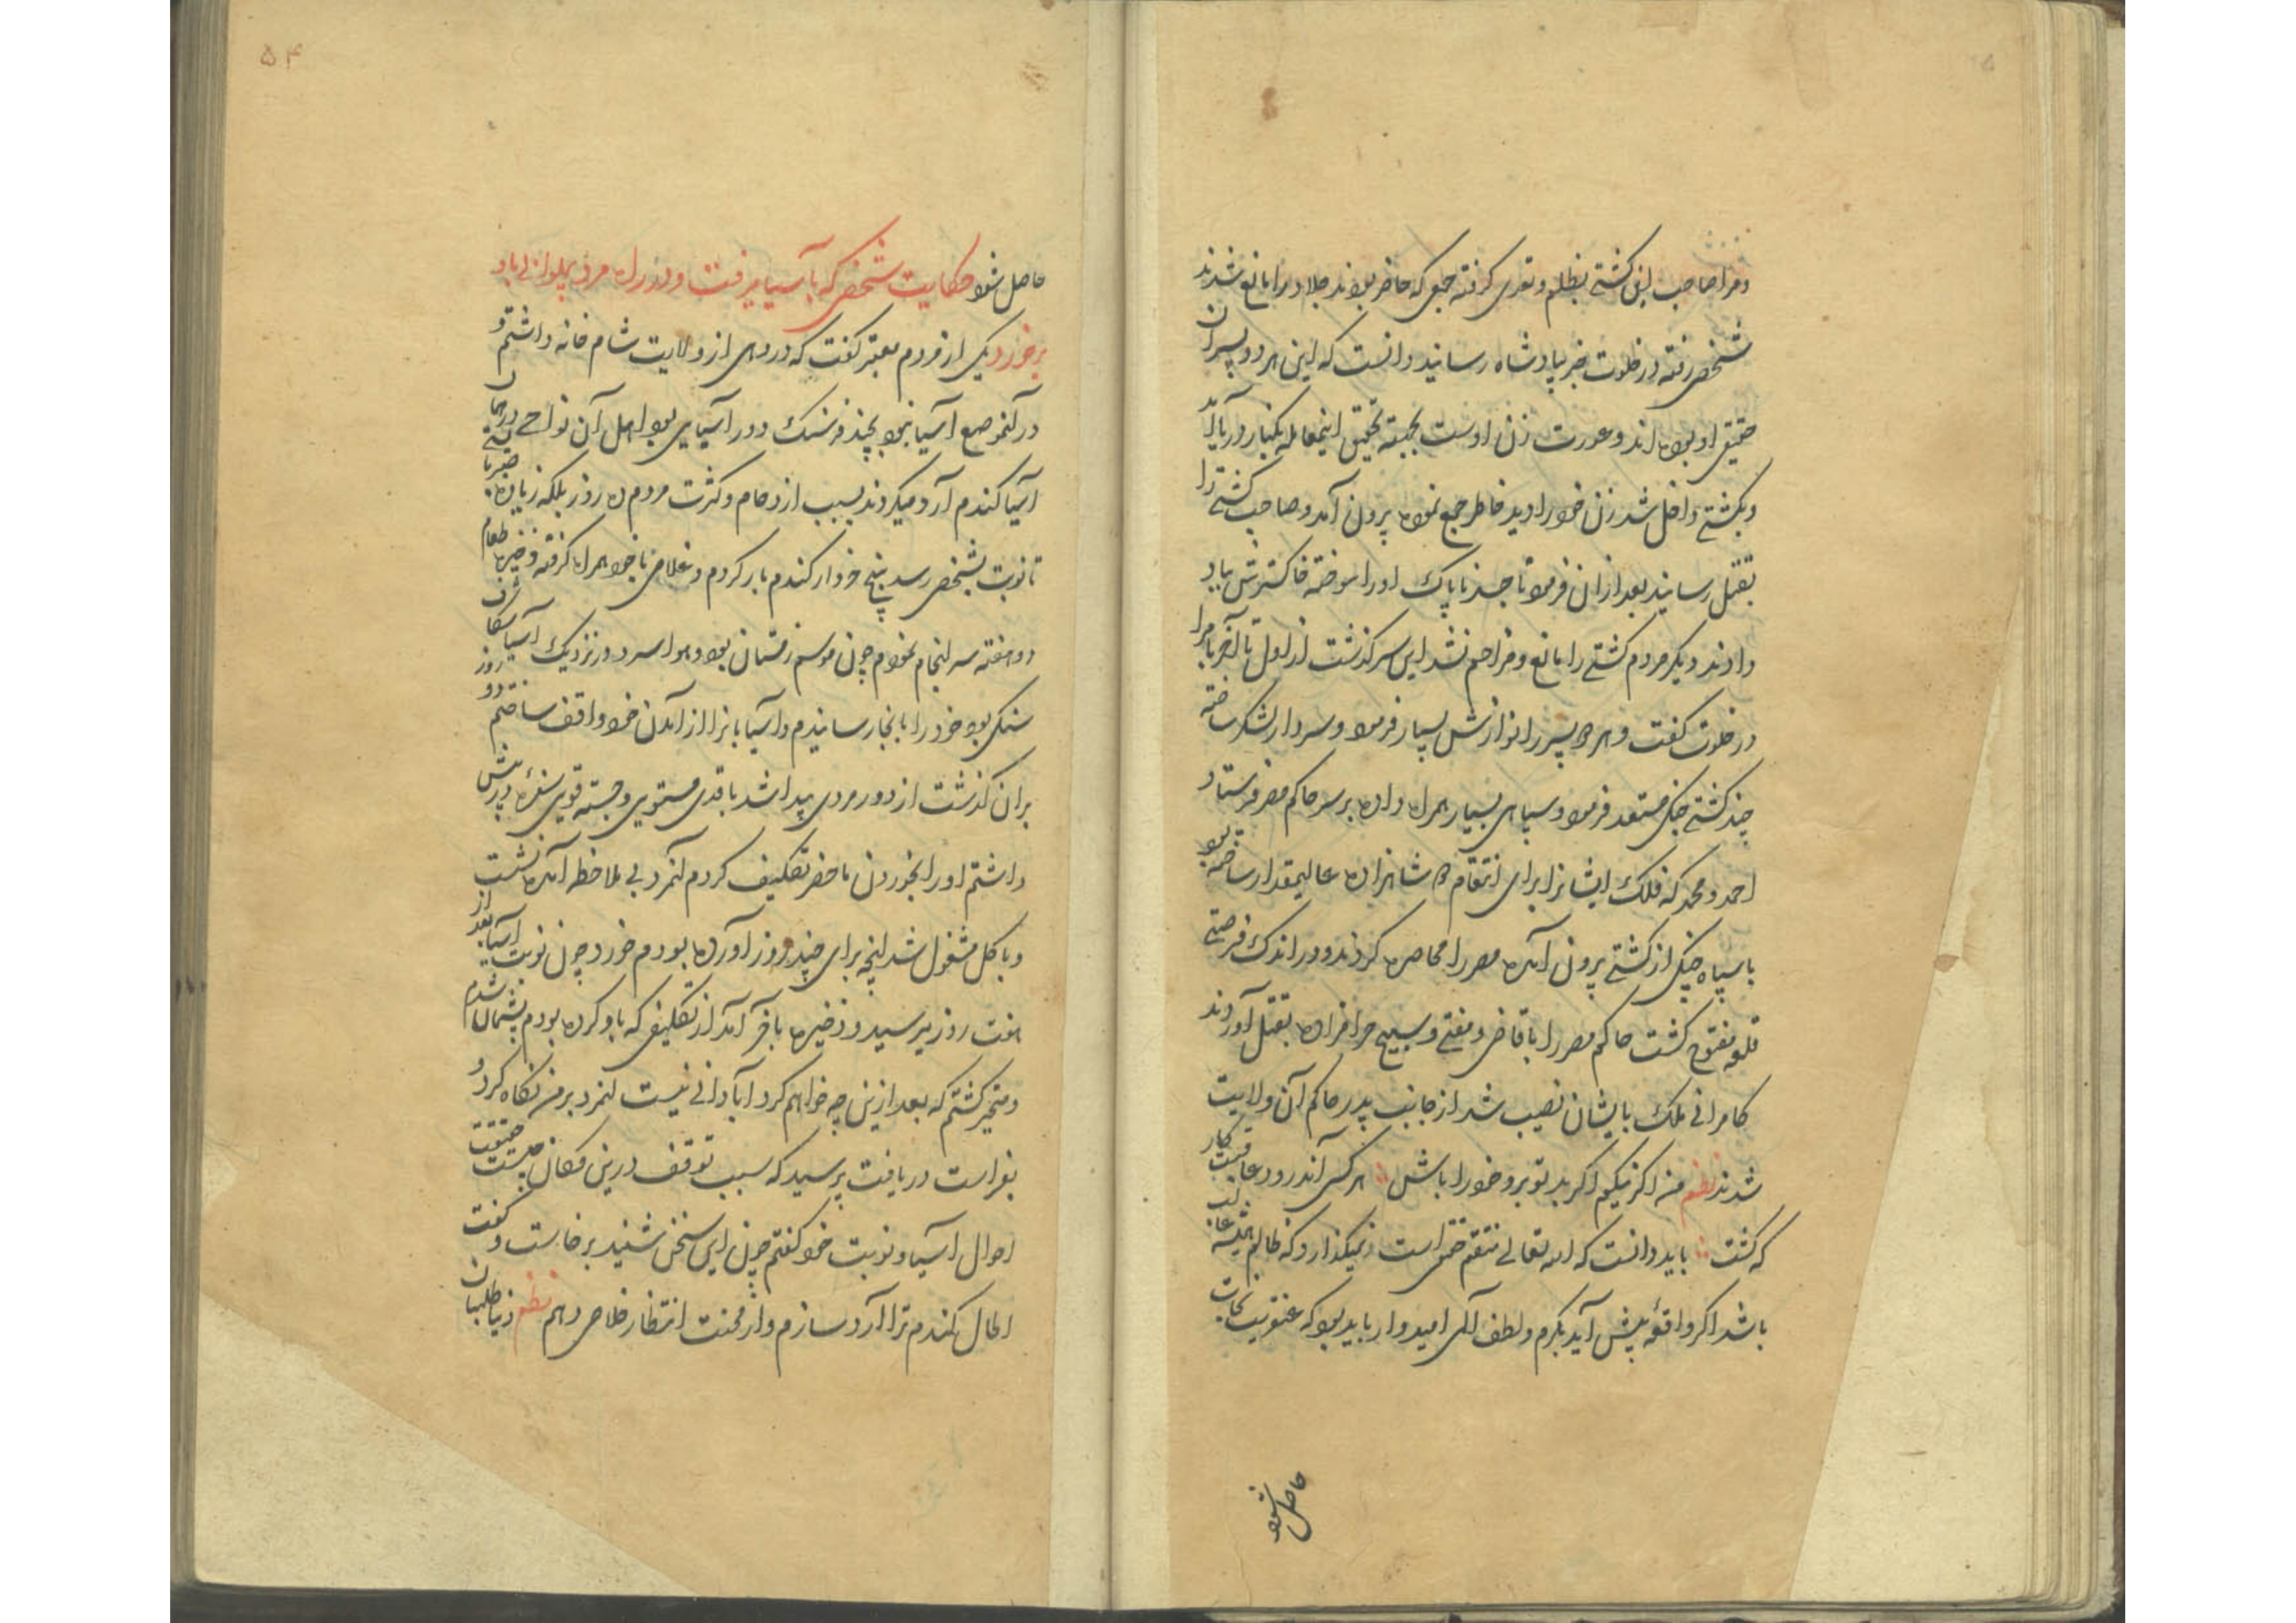 ومرا صاحب این کشتی بظلم و تعدی کرفته جمعی که حاضر بودند جلاد را مانع شدند
شخصی رفته در خلوت خبر بپادشاه رسانید دانست که این هر دو پسران
حقیقی او بوده اند و عورت زن اوست بجهته تحقیق اینمعامله بکنار دریا آمد
و بکشتی داخل شد زن خود را دید خاطر جمع نموده برون آمد و صاحب کشتی را
بقتل رسانید بعد از ان فرمود تا جسد ناپاک او را سوخته خاکسترش بباد
دادند دیکر مردم کشتی را مانع و مزاحم نشد این سرکذشت از اول تا آخر با مرا
در خلوت کفت و هر دو پسر را نوازش بسیار فرمود و سردار لشکر ساخته
چند کشتی جنکی مستعد فرمود و سپاهی بسیار همراه داده بر سر حاکم مصر فرستاد
احمد و محمد که فلک ایشانرا برای انتقام شاهزاده عالیمقدار ساخته بود
با سپاه جنکی از کشتی برون آمده مصر را محاصره کردند و در اندک فرصتی
قلعه مفتوح کشت حاکم مصر را با قاضی و مفتی و سبیح حرامزاده بقتل آوردند
کامرانی ملک بایشان نصیب شد از جانب پدر حاکم آن ولایت
شدند نظم من اکر نیکم اکر بد تو برو خود را باش هر کسی آن درود عاقبت کار
که کشت باید دانست که الله تعالی منتقم حقیقی است نمیکذارد که ظالم همیشه غالب
باشد اکر واقعه پیش آید بکرم و لطف آلهی امیدوار باید بود که عنقریب نجات
حاصل شود
۵۴
حاصل شود حکایت شخصی که بآسیا میرفت و در راه مرد پهلوانی باو
برخورد یکی از مردم معتبر کفت که در دهی از ولایت شام خانه داشتم و
در آنموضع آسیا نبود بچند فرسنک دور آسیایی بود اهل آن نواحی در همان
آسیا کندم آرد میکردند بسبب ازدحام و کثرت مردم ده روز بلکه زیاده صبر بایستی
تا نوبت بشخصی رسد پنج خروار کندم بار کردم و غلامی با خود همراه کرفته ذخیره طعام
دو هفته سرانجام نمودم چون موسم زمستان بود و هوا سرد در نزدیک آسیا شکاف
سنکی بود خود را بانجا رسانیدم و آسیابانرا از آمدن خود واقف ساختم دو روز
بران کذشت از دور مردی پیدا شد با قدی مستوی و جسته قوی سفره در پیش
داشتم او را بخوردن ماحضر تکلیف کردم آنمرد بی ملاحظه آمده نشست
و باکل مشغول شد آنچه برای چند روز آورده بودم خورد چون نوبت آسیا بعد از
هفت روز میرسید و ذخیره باخر آمد از تکلیفی که باو کرده بودم پشیمان شدم
و متحیر کشتم که بعد ازین چه خواهم کرد آبادانی نیست آنمرد بر من نکاه کرد و
بفراست دریافت پرسید که سبب توقف درین مکان چیست حقیقت
احوال آسیا و نوبت خود کفتم چون این سخن شنید برخاست و کفت
الحال کندم ترا آرد سازم و از محنت انتظار خلاصی دهم نظم دنیا طلبان